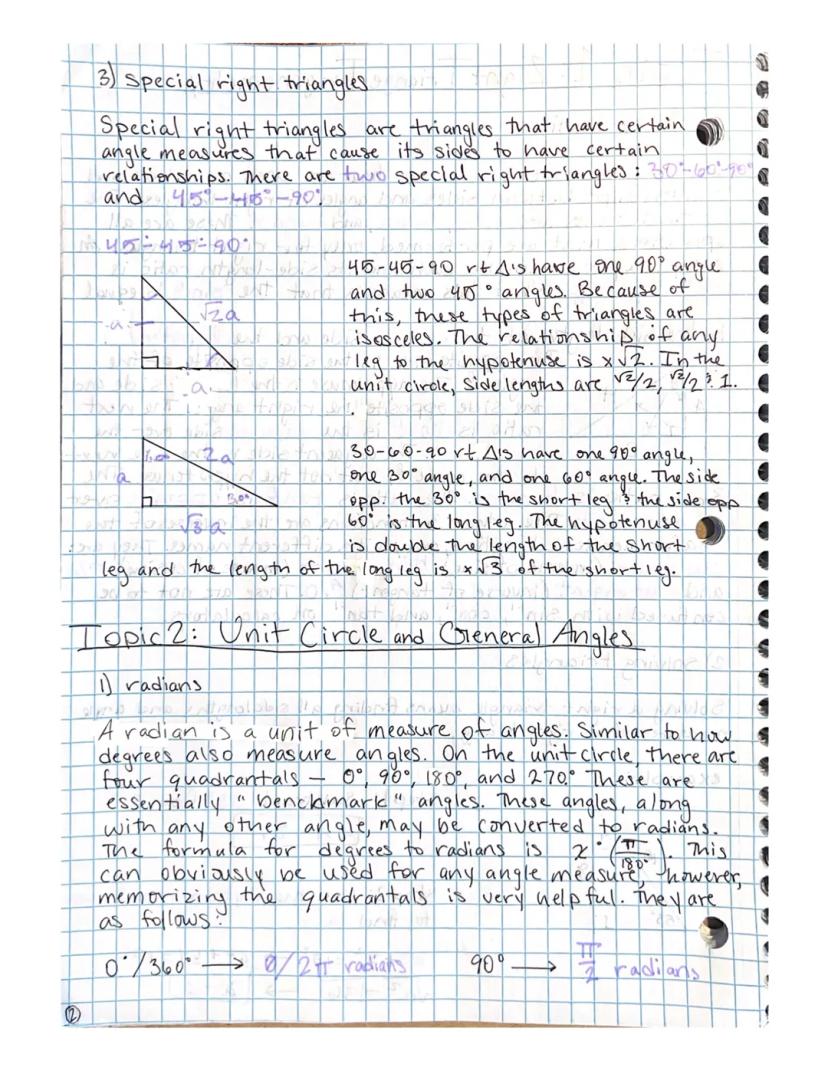 3) Special right triangles
Special right triangles are triangles that have certain
angle measures that cause its sides to have certain
relationships. There are two special right triangles: 30°-60°-90°
and 45°-45°-90°.
45-45-90:
45-45-90 rt Δ's have one 90° angle
and two 45° angles. Because of
this, these types of triangles are
isosceles. The relationship of any
leg to the hypotenuse is x√2. In the
unit circle, side lengths are √2/2, √2/2 & 1.
a
√2a
a
30-60-90 rt Δ's have one 90° angle,
one 30° angle, and one 60° angle. The side
opp. the 30° is the short leg & the side opp
60° is the long leg. The hypotenuse
is double the length of the short
leg and the length of the long leg is x√3 of the short leg.
60°
2a
a
30°
√3 a
Topic 2: Unit Circle and General Angles
1) radians
A radian is a unit of measure of angles. Similar to how
degrees also measure angles. On the unit circle, there are
four quadrantals – 0°, 90°, 180°, and 270°. These are
essentially "benckmark" angles. These angles, along
with any other angle, may be converted to radians.
The formula for degrees to radians is x° (π/180°). This
can obviously be used for any angle measure, however,
memorizing the quadrantals is very helpful. They are
as follows:
0°/360° → 0/2π radians 90° → π/2 radians
2